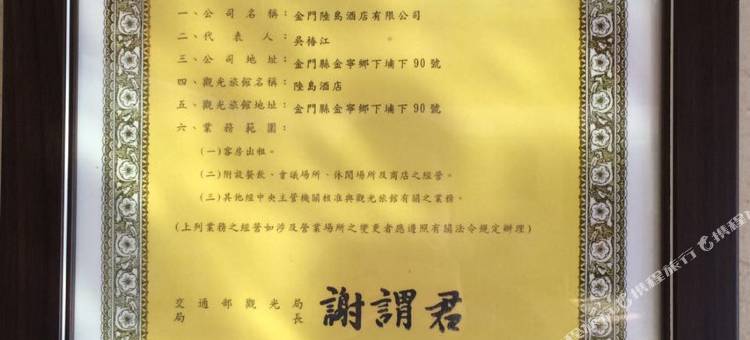 一、公司名稱：金門陸島酒店有限公司
二、代表人：吳椿江
三、公司地址：金門縣金寧鄉下埔下90號
四、觀光旅館名稱：陸島酒店
五、觀光旅館地址：金門縣金寧鄉下埔下90號
六、業務範圍：
(一)客房出租。
(二)附設餐飲、會議場所、休閒場所及商店之經營。
(三)其他經中央主管機關核准與觀光旅館有關之業務。
(上列業務之經營如涉及營業場所之變更者應遵照有關法令規定辦理)
交通部觀光局
局長 謝謂君
携程旅行
携程